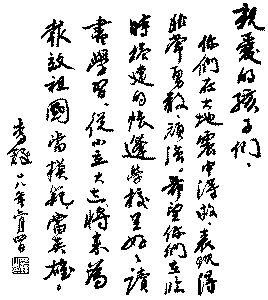 親愛的孩子們、
你們在大地震中得救、表現得
非常勇敢、頑強。希望你們在臨
時搭建的帳蓬學校里好々讀
書學習、從小立大志、將來為
報效祖國當模範、當英雄。
八年六月四日